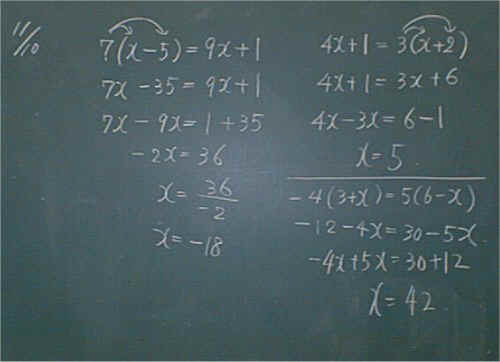 11/10
7(x-5)=9x+1
7x-35=9x+1
7x-9x=1+35
-2x=36
x=36/-2
x=-18
4x+1=3(x+2)
4x+1=3x+6
4x-3x=6-1
x=5
-4(3+x)=5(6-x)
-12-4x=30-5x
-4x+5x=30+12
x=42